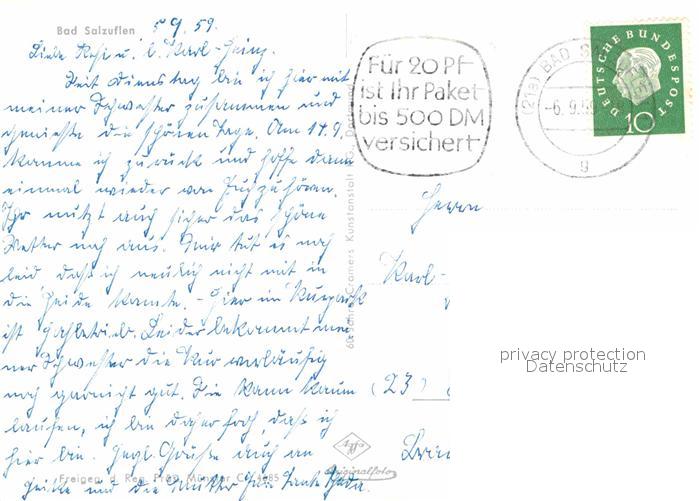 Bad Salzuflen 5.9.59.
Liebe Resi u. l. Karl-Heinz.
Seit Dienstag bin ich hier mit
meiner Schwester zusammen und
genieße die schönen Tage. Am 14.9.
komme ich zurück und hoffe dann
einmal wieder von Euch zu hören.
Ihr nutzt auch sicher das schöne
Wetter noch aus. Mir tut es noch
leid daß ich neulich nicht mit in
die Heide konnte. - Hier im Kurpark
ist Hochbetrieb. Leider bekommt mei-
ner Schwester die Kur vorläufig
noch garnicht gut. Sie kann kaum
laufen, ich bin daher froh, daß ich
hier bin. Herzl. Grüße auch an
und die Mutter Eure Tante
Freigeg. d. Reg. Präs. Münster
Für 20 Pf
ist Ihr Paket
bis 500 DM
versichert
(21a) BAD
-6.9.59
g
DEUTSCHE BUNDESPOST
10
Herrn
Karl-
(23)
Cramers Kunstanstalt
Agfa
Originalfoto
privacy protection
Datenschutz